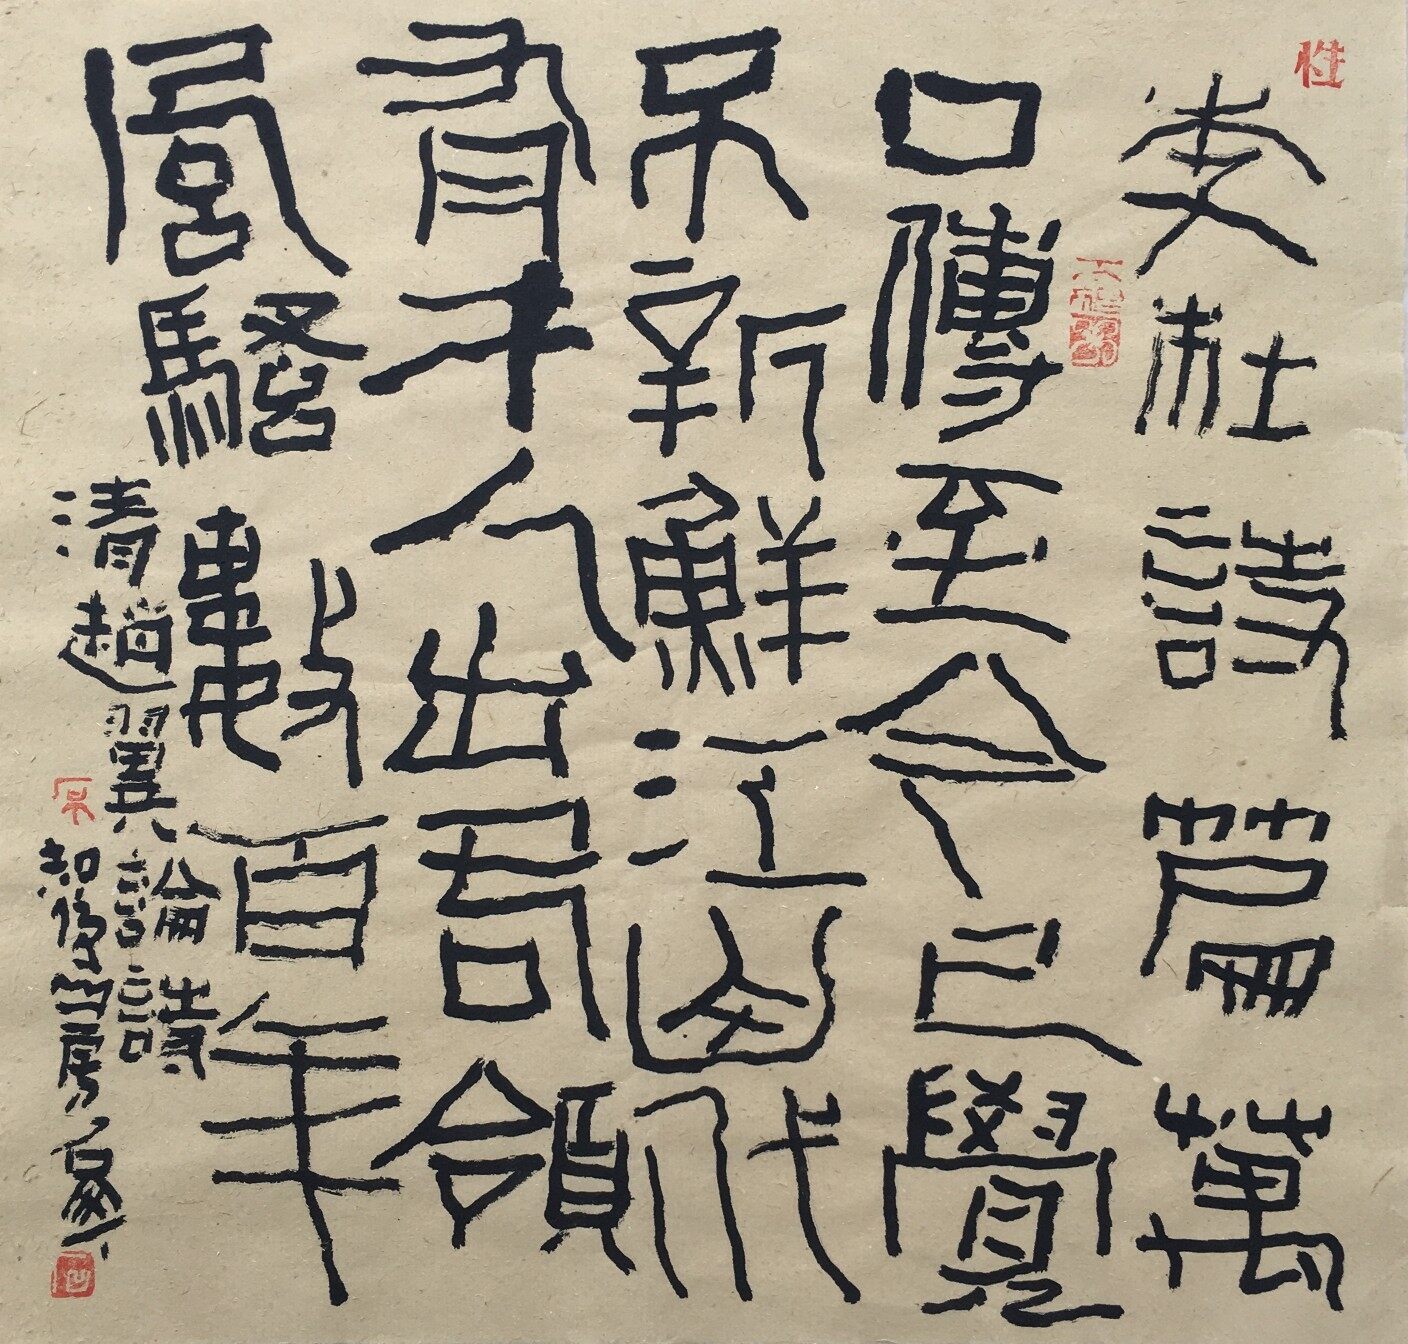 李杜詩篇萬
口傳至今已覺
不新鮮江山代
有才人出各領
風騷數百年
清趙翼論詩
山房